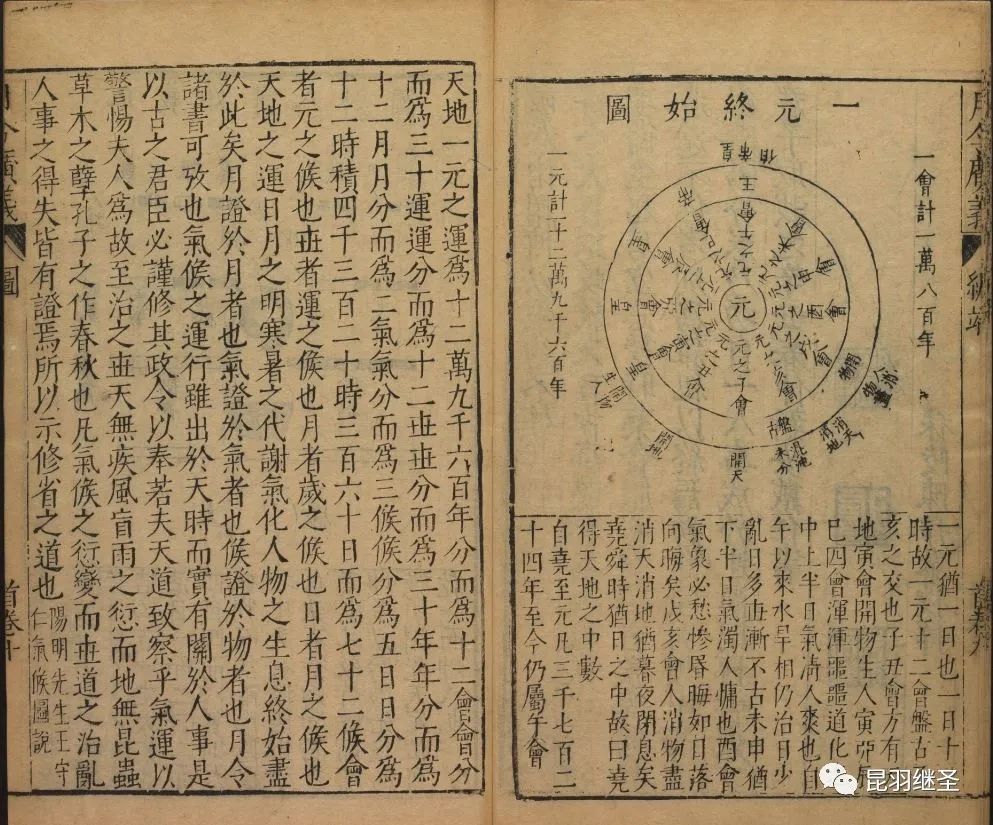 月令廣義
一會計一萬八百年
一元終始圖
一元計一十二萬九千六百年
元
元之子會
元之丑會
元之寅會
元之卯會
元之辰會
元之巳會
元之午會
元之未會
元之申會
元之酉會
元之戌會
元之亥會
開天
開地
開物
生人
皇
皇
皇
帝
王
閉物
人消
物盡
消天
消地
混沌
未分
盤古
一元猶一日也一日十
時故一元十二會盤古
亥之交也子丑會方有
地寅會開物生人寅卯
巳四會渾渾噩噩道化
中上半日氣清人爽也自
午以來水旱相仍治日少
亂日多世漸不古未申猶
下半日氣濁人慵也酉會
氣象必愁慘昏晦如日落
向晦矣戌亥會人消物盡
消天消地猶暮夜閉息矣
堯舜時猶日之中故曰堯
得天地之中數
自堯至元凡三千七百二
十四年至今仍屬午會
天地一元之運爲十二萬九千六百年分而爲十二會會分
而爲三十運運分而爲十二世世分而爲三十年年分而爲
十二月月分而爲二氣氣分而爲三候候分爲五日日分爲
十二時積四千三百二十時三百六十日而爲七十二候會
者元之候也世者運之候也月者歲之候也日者月之候也
天地之運日月之明寒暑之代謝氣化人物之生息終始盡
於此矣月證於月者也氣證於氣者也候證於物者也月令
諸書可攷也氣候之運行雖出於天時而實有關於人事是
以古之君臣必謹修其政令以奉若夫天道致察乎氣運以
警惕夫人爲故至治之世天無疾風盲雨之愆而地無昆蟲
草木之孽孔子之作春秋也凡氣候之愆變而世道之治亂
人事之得失皆有證焉所以示修省之道也陽明先生王守仁氣候圖說
月令廣義
圖
首卷十
昆羽继圣